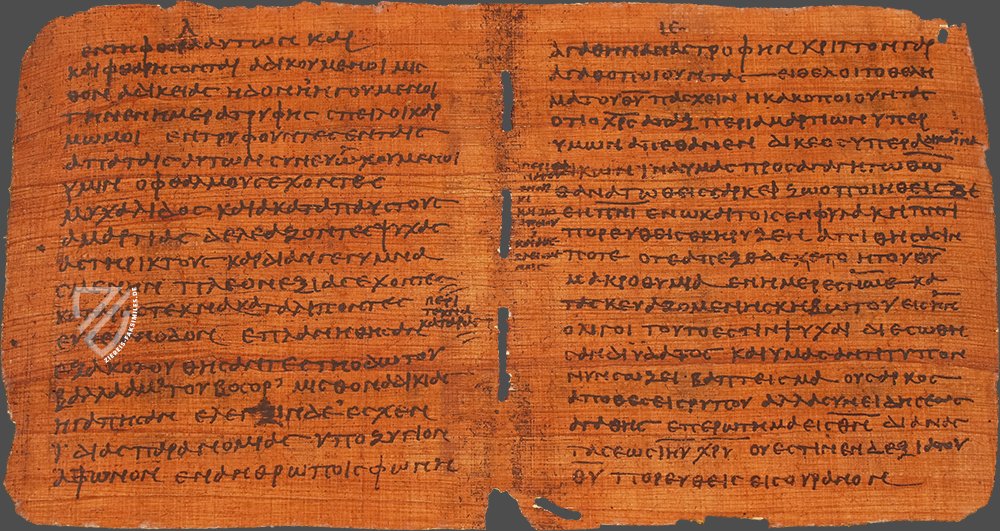 λ
εντηφθορααυτωνκαι
καιφθαρησονταιαδικουμενοιμισ
θοναδικειαςηδονηνηγουμενοι
τηνενημερατρυφηςσπειλοικαι
μωμοιεντρυφουντεςενταις
απαταιςαυτωνσυνευωχουμενοι
υμινοφθαλμουςεχοντες
μυχαλιδοςκαιακαταπαυστους
αμαρτιαςδελεαζοντεςψυχας
αστηρικτουςκαρδιανγεγυμνα
πλεονεξιαςεχοντες
τεκνακαταλιποντες
οδονεπλανηθησαν
εξακολουθησαντεςτηοδωτου
βαλααμτουβοσορμισθοναδικιας
ηγαπησενελεγξινδεεσχεν
ϊδιαςπαρανομιαςυποζυγιον
αφωνονενανθρωποιςφωνη
περι
τεκνα
καταρας
ιε
αγαθηναναστροφηνκριττονγαρ
αγαθοποιουνταςειθελοιτοθελη
ματουθυπασχεινηκακοποιουντας
οτιοχρςαπαξπεριαμαρτιωνυπερ
υμωναπεθανενδικεοςυπεραδικων
ιναυμαςπροσαγαγητωθω
θανατωθειςσαρκειζωοποιηθειςδε
ενπνιενωκαιτοιςενφυλακηπνι
πορευθειςεκηρυξεναπιθησασιν
ποτεοτεαπεξεδεχετοητουθυ
μακροθυμιαενημερεςνωεκα
τασκευαζομενηςκηβωτουειςην
ολιγοιτουτοεστινηψυχαιδιεσωθη
σανδιυδατοςκαιυμαςαντιτυπον
νυνσωζειβαπτεισμαουσαρκος
αποθεσειςρυπουαλλασυνειδησεως
αγαθηςεπερωτημαειςθνδιανας
τασεωςιηυχρυοςεστινενδεξιατου
θυπορευθειςειςουρανον
ZIEREIS-FAKSIMILES.DE